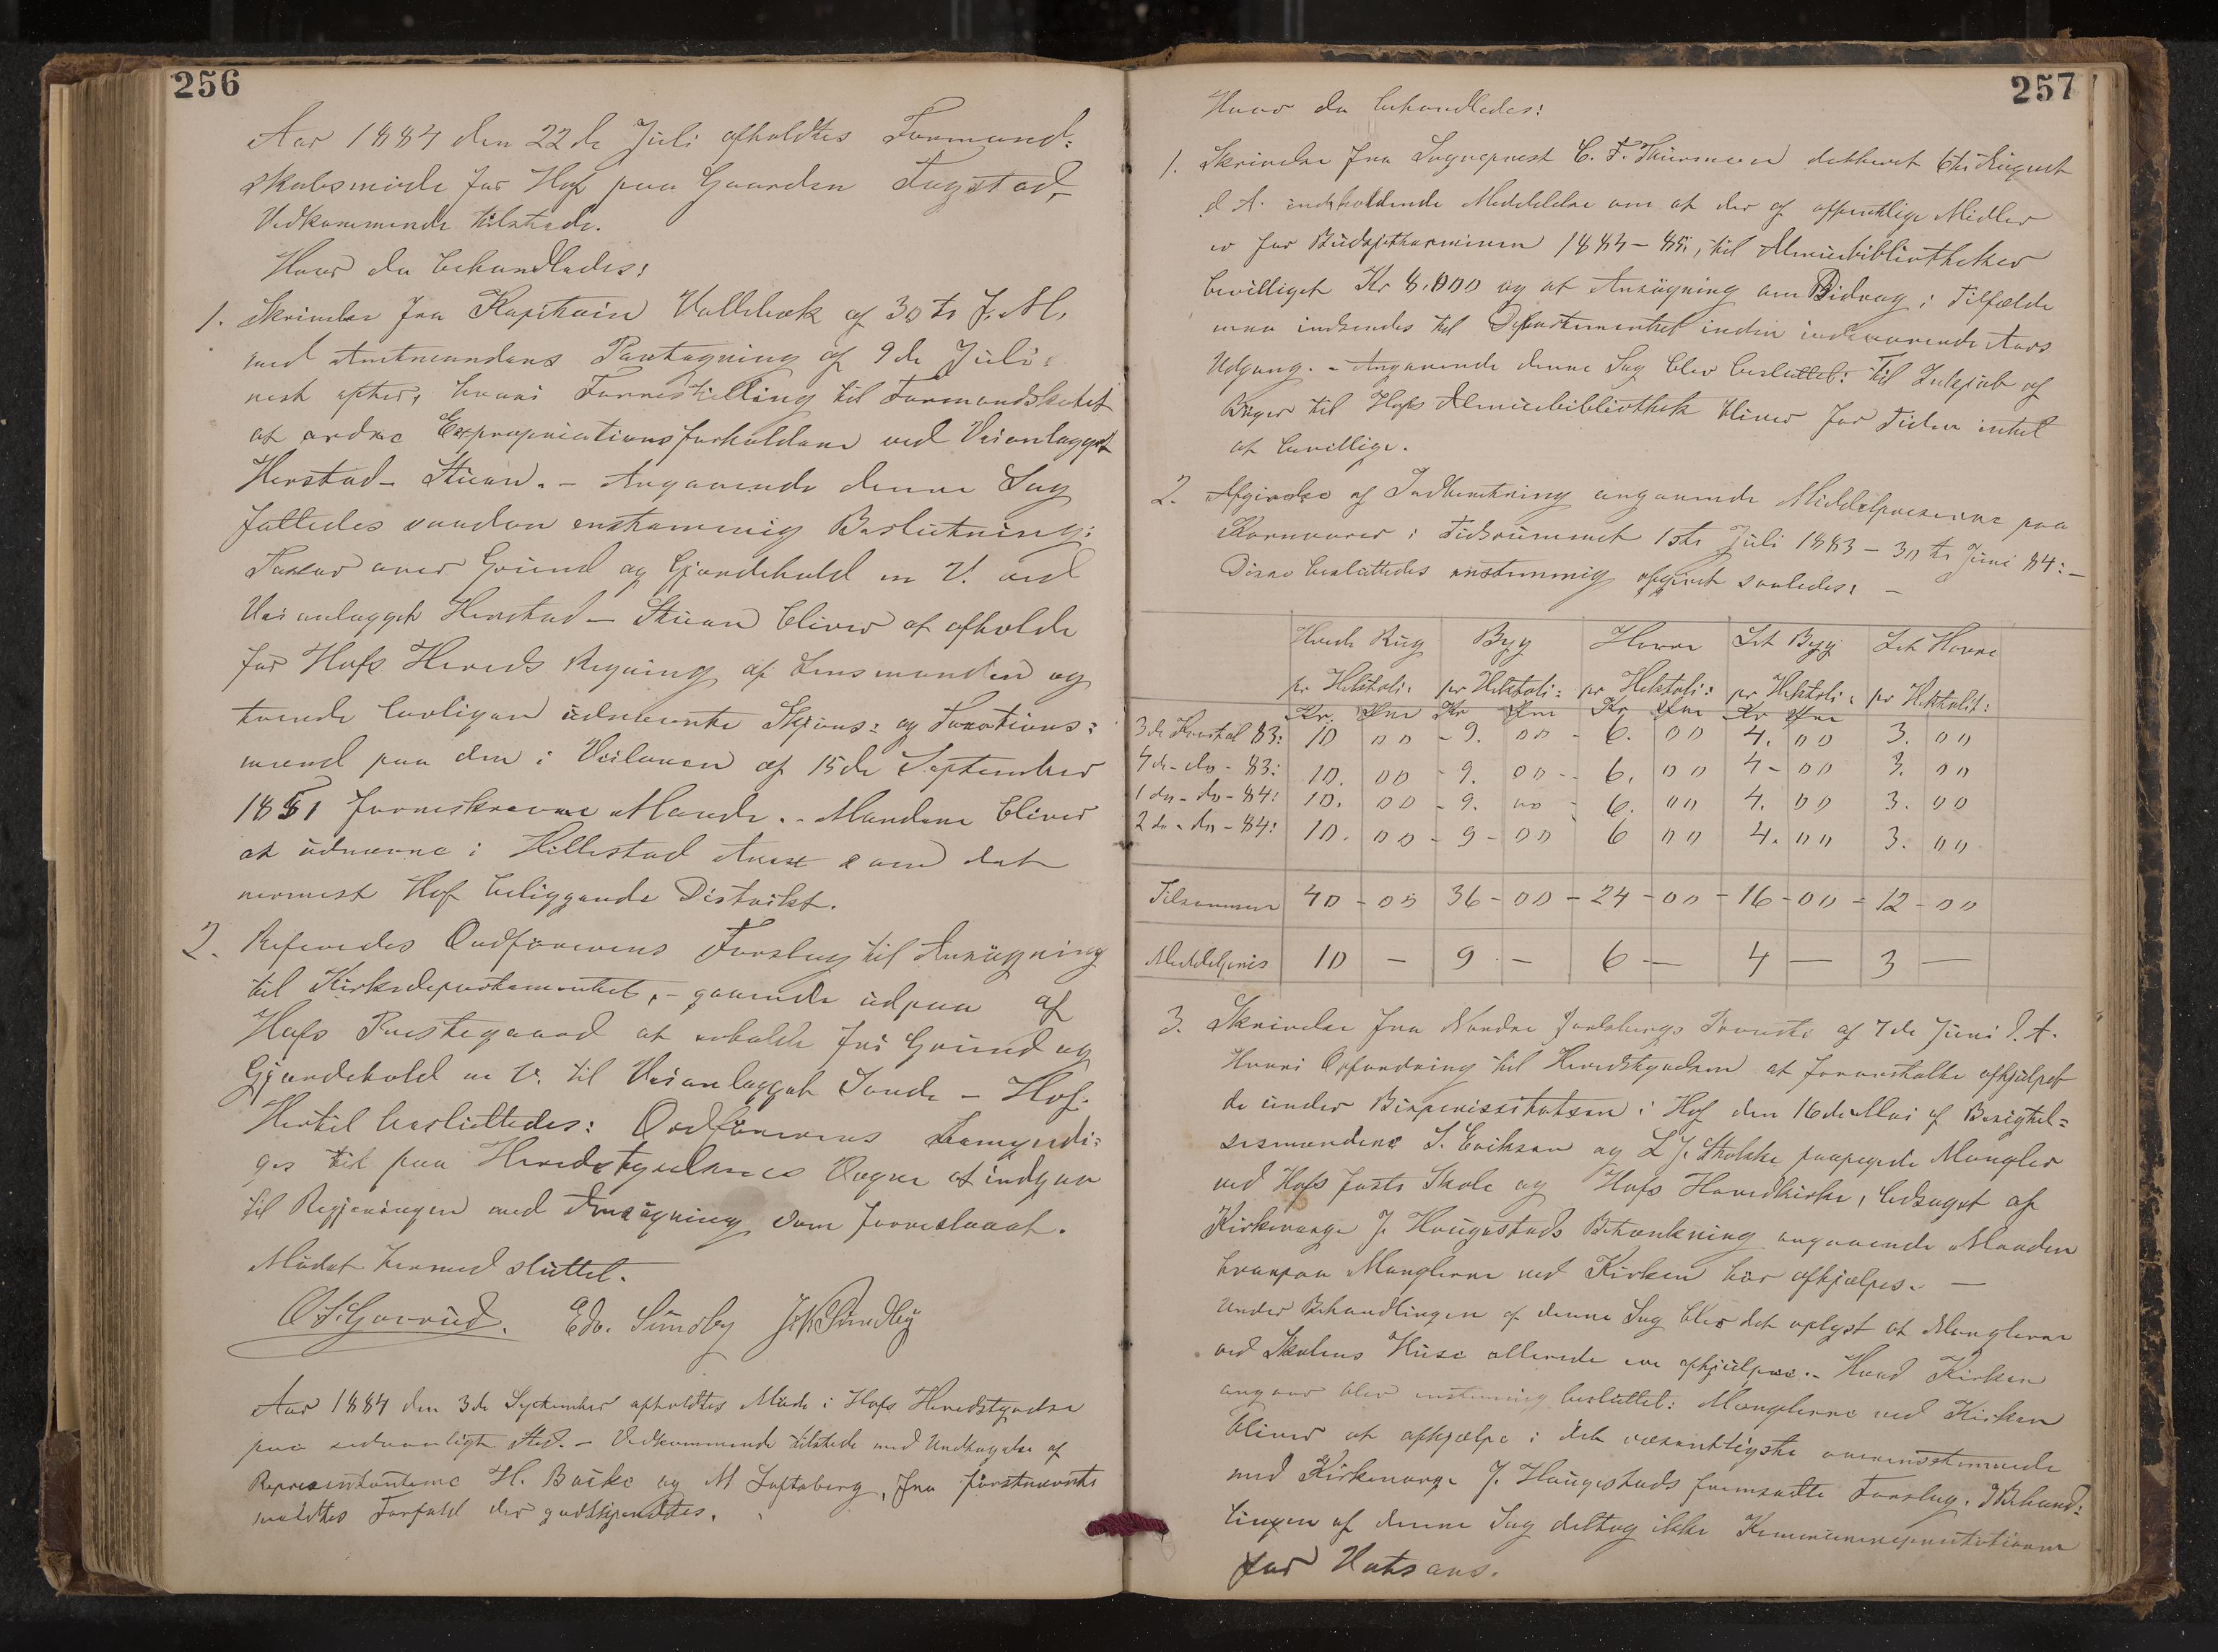 256
Aar 1884 den 22de Juli afholdtes Formand-
skabsmøde for Hof paa Gaarden Fugstad,
Vedkommende tilstede.
Hvor da behandledes:
1. Skrivelse fra Kapitain Vallebæk af 30te f. M.
med Amtmandens Paategning af 9de Juli
nest efter, hvori Forrestilling til Formandskabet
at ordne Expropriationsforholdene ved Veianlægget
Herstad - Stuen. - Angaaende denne Sag
fattedes saadan enstemmig Beslutning:
Taxter over Grund og Gjerdehold m V. ved
Veianlægget Herstad - Stuen bliver at afholde
for Hofs Herreds Regning af Lensmanden og
tvende lovligen udnævnte Skjøns- og Taxations-
mænd paa den i Veiloven af 15de September
1851 foreskrevne Maade. - Mændene bliver
at udnævne i Hillestad som det
nærmest Hof beliggende Distrikt.
2. Refereredes Ordførerens Forslag til Ansøgning
til Kirkedepartementet, - gaaende udpaa af
Hofs Prestegaard at erholde fri Grund og
Gjerdehold m V. til Veianlægget Sande - Hof.
Hertil besluttedes: Ordføreren bemyndi-
ges til paa Herredstyrelsens Vegne at indgaa
til Regjeringen med Ansøgning som foreslaaet.
Mødet hermed sluttet.
Edv. Sundby J. K. Sundby
Aar 1884 den 3de September afholdtes Møde i Hofs Herredstyrelse
paa sedvanligt Sted. - Vedkommende tilstede med Undtagelse af
Representanterne H. Bakke og M Loftsberg, fra førstnævnte
meldtes Forfald der godkjendtes.
257
Hvor da behandledes:
1. Skrivelse fra Sogneprest C. F. Thurmann datteret 6te August
d A. indeholdende Meddelelse om at der af offentlige Midler
er for Budgetterminen 1884-85, til Almuebibliotheker
bevilliget Kr 8,000 og at Ansøgning om Bidrag i Tilfælde
maa indsendes til Departementet inden indeværende Aars
Udgang. - Angaaende denne Sag blev besluttet: Til Indkjøb af
Bøger til Hofs Almuebibliothek bliver for Tiden intet
at bevillige.
2. Afgivelse af Indberetning angaaende Middelpriserne paa
Kornvarer i Tidsrummet 1ste Juli 1883 - 30te Juni 84: -
Disse besluttedes enstemmig afgivet saaledes: -
Hvede Rug Byg Havre Let Byg Let Havre
pr Hektoli: pr Hektoli: pr Hektoli: pr Hektoli: pr Hektolit:
Kr. Øre Kr Øre Kr Øre Kr Øre
3de Kvartal 83: 10 00 - 9. 00 - 6. 00 4. 00 3. 00
4de - do - 83: 10. 00 - 9. 00 - 6. 00 4 - 00 3. 00
1ste - do - 84: 10. 00 - 9. 00 - 6. 00 4. 00 3. 00
2de - do - 84: 10. 00 - 9 - 00 6 00 4. 00 3. 00
Tilsammen 40 - 00 36 - 00 - 24 - 00 - 16 - 00 - 12 - 00
Middelpris 10 - 9 - 6 - 4 - 3 -
3. Skrivelse fra Nordre Jarlsbergs Provsti af 7de Juni d. A.
Hvori Opfordring til Herredstyrelsen at foranstalte afhjulpet
de under Bispevisitatsen i Hof den 16de Mai af Besigtel-
sesmændene S. Eriksen og L J. Stokke paapegede Mangler
ved Hofs faste Skole og Hofs Hovedkirke, ledsaget af
Kirkeverge J. Haugestads Betænkning angaaende Maaden
hvorpaa Manglerne ved Kirken bør afhjælpes. -
Under Behandlingen af denne Sag blev det oplyst at Manglerne
ved Skolens Huse allerede ere afhjulpne. - Hvad Kirken
angaar blev enstemmig besluttet: Manglerne ved Kirken
bliver at afhjælpe i det væsentligste overensstemmende
med Kirkeverge J. Haugestads fremsatte Forslag. I Behand-
lingen af denne Sag deltog ikke
for Vatsaas.